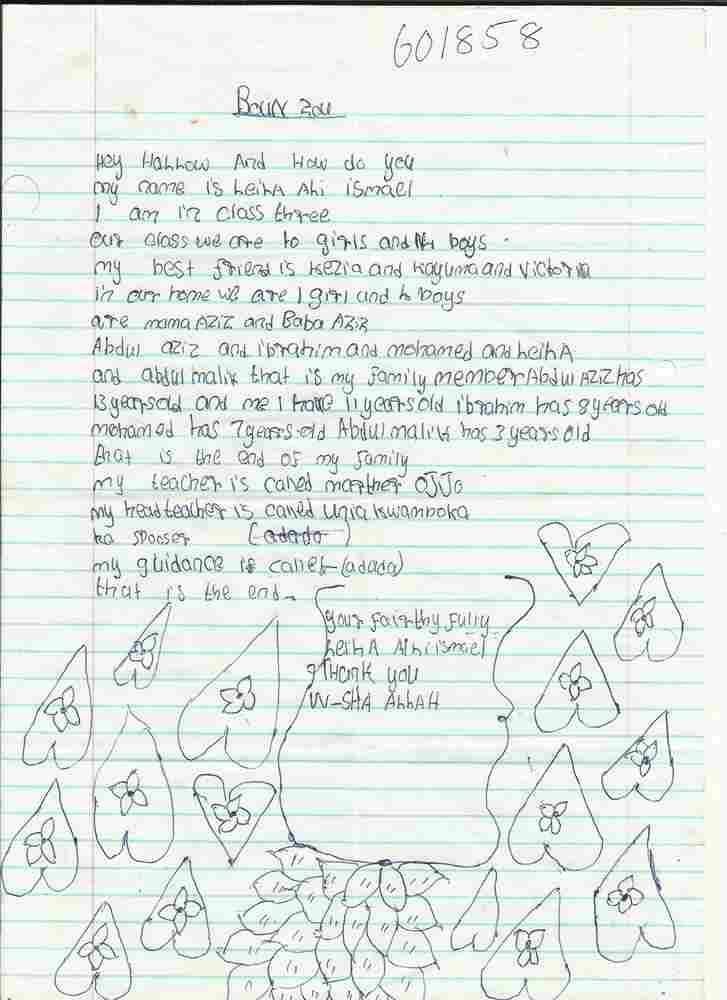 601858
Boun zou
Hey Hallow And How do you
my name is leilA Ali ismael
I am in class three
our class we are 10 girls and 14 boys .
my best friend is Kezia and Kayuma and Victoria
in our home we are 1 girl and 4 boys
are mama AZIZ and Baba AZIZ
Abdul aziz and ibrahim and mohamed and leilA
and abdul malik that is my family member Abdul AZIZ has
13 years old and me I have 11 years old ibrahim has 8 years old
mohamed has 7 years old Abdul malik has 3 years old
that is the end of my family
my teacher is called marther OJJO
my headteacher is called
sposser (adado)
my guidance is callet (adado)
that is the end.
your fairthy fully
leilA Alhi ismael
Thank you
IN-SHA AllAH